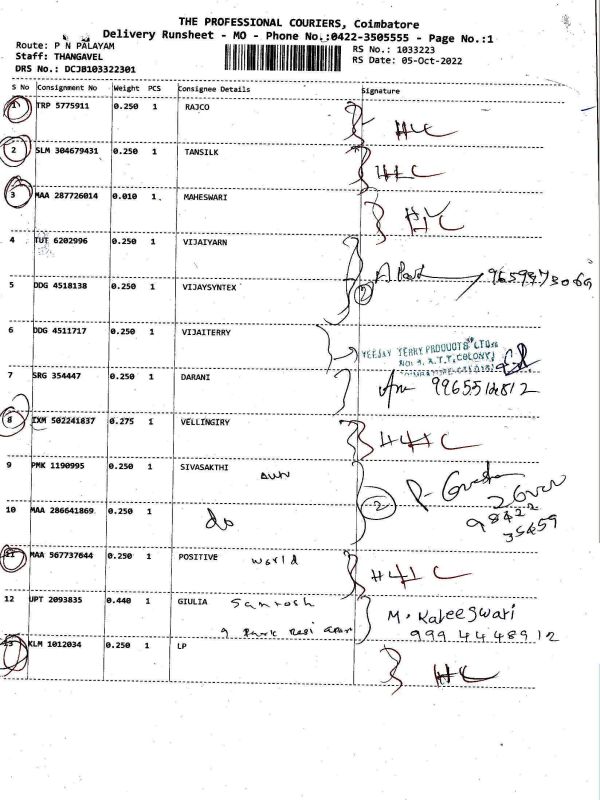 THE PROFESSIONAL COURIERS, Coimbatore
Delivery Runsheet - MO - Phone No.:0422-3505555 - Page No.:1
Route: P N PALAYAM
Staff: THANGAVEL
DRS No.: DCJB103322301
RS No.: 1033223
RS Date: 05-Oct-2022
S No Consignment No Weight PCS Consignee Details Signature
1 TRP 5775911 0.250 1 RAJCO
2 SLM 304679431 0.250 1 TANSILK
3 MAA 287726014 0.010 1 MAHESWARI
4 TUT 6202996 0.250 1 VIJAIYARN
5 DDG 4518138 0.250 1 VIJAYSYNTEX 2
6 DDG 4511717 0.250 1 VIJAITERRY
VEEJAY TERRY PRODUCTS LTD
7 SRG 354447 0.250 1 DARANI
8 IXM 502241837 0.275 1 VELLINGIRY
9 PMK 1190995 0.250 1 SIVASAKTHI
10 MAA 286641869 0.250 1 do 2
98422
35459
11 MAA 567737644 0.250 1 POSITIVE world
12 UPT 2093835 0.440 1 GIULIA Santosh M. Kaleeswari
9 Park 9994448912
13 KLM 1012034 0.250 1 LP